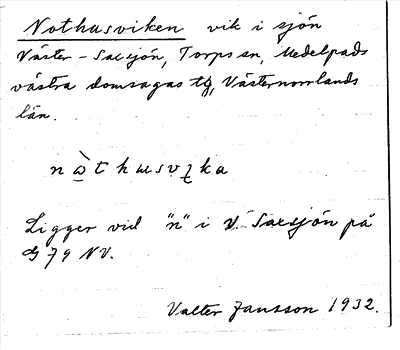 Nothusviken vik i sjön
Väster-Saxsjön, Torps sn, Medelpads
västra domsagas tg, Västernorrlands
län.
Ligger vid "n" i V. Saxsjön på
G 79 NV.
Valter Jansson 1932.